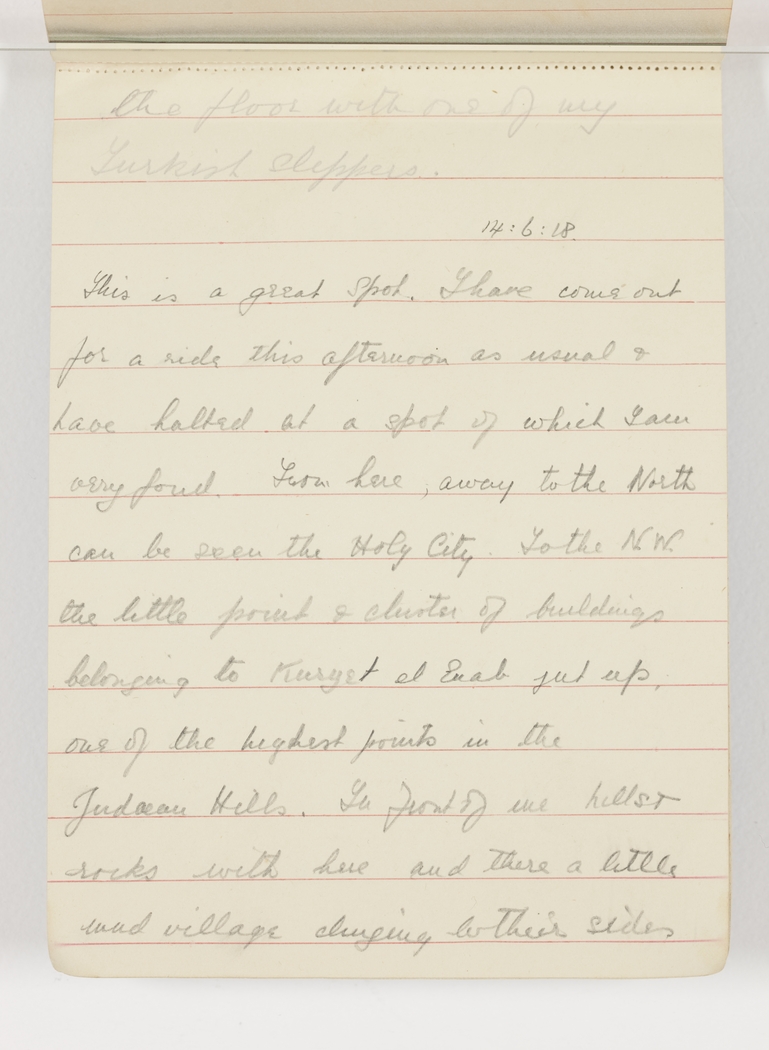 the floor with one of my
Turkish slippers.
14:6:18.
This is a great spot. I have come out
for a ride this afternoon as usual &
have halted at a spot of which I am
very fond. From here, away to the North
can be seen the Holy City. To the N.W.
the little point & cluster of buildings
belonging to Kuryet el Enab jut up,
one of the highest points in the
Judaean Hills. In front of me hills &
rocks with here and there a little
mud village clinging to their sides